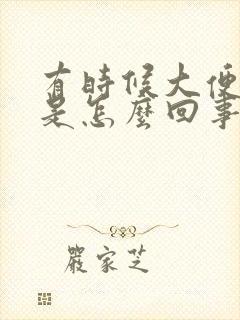 有時候大便
是怎麼回事
嚴家芝